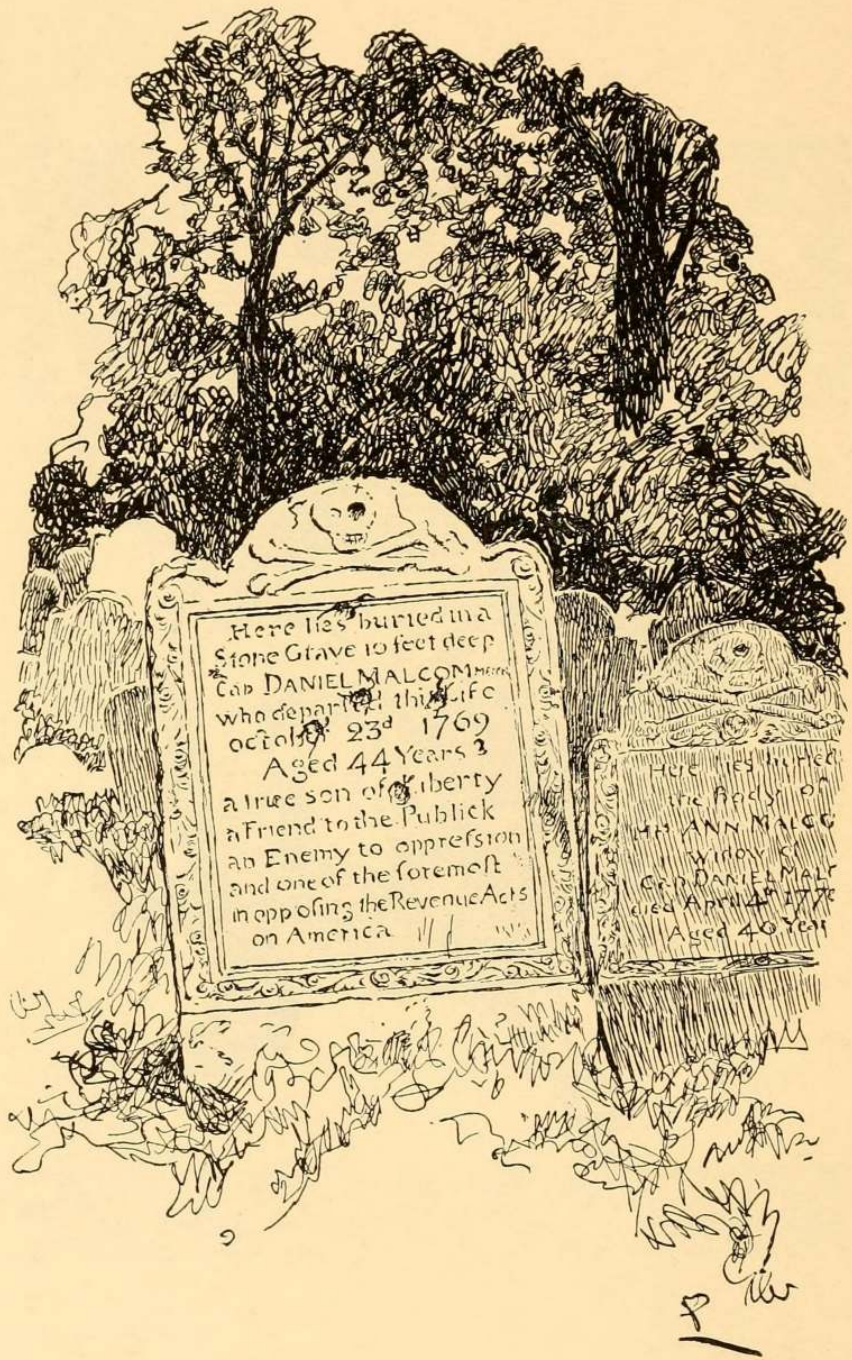 Here lies buried in a
Stone Grave 10 feet deep
Cap DANIEL MALCOM
who departed this Life
october 23d 1769
Aged 44 Years
a true son of Liberty
a Friend to the Publick
an Enemy to oppression
and one of the foremost
in opposing the Revenue Acts
on America
Here lies buried
the Body of
Mrs ANN MALCO
widow of
Cap DANIEL MALC
died April 4th 1770
Aged 40 Year
P